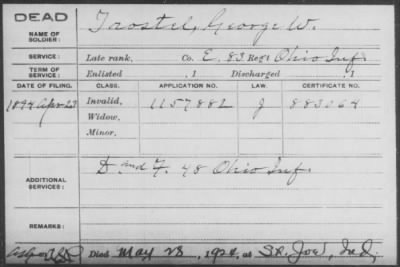 DEAD
NAME OF SOLDIER: Trostel, George W.
SERVICE: Late rank, Co. E, 83 Reg't Ohio Inf.
TERM OF SERVICE: Enlisted , 1 Discharged , 1
DATE OF FILING. CLASS. APPLICATION NO. LAW. CERTIFICATE NO.
1894 Apr 23 Invalid, 1157882 J 883064
Widow,
Minor,
ADDITIONAL SERVICES: D and F. 48 Ohio Inf.
REMARKS:
Died May 28, 192, at St. Joe, Ind.